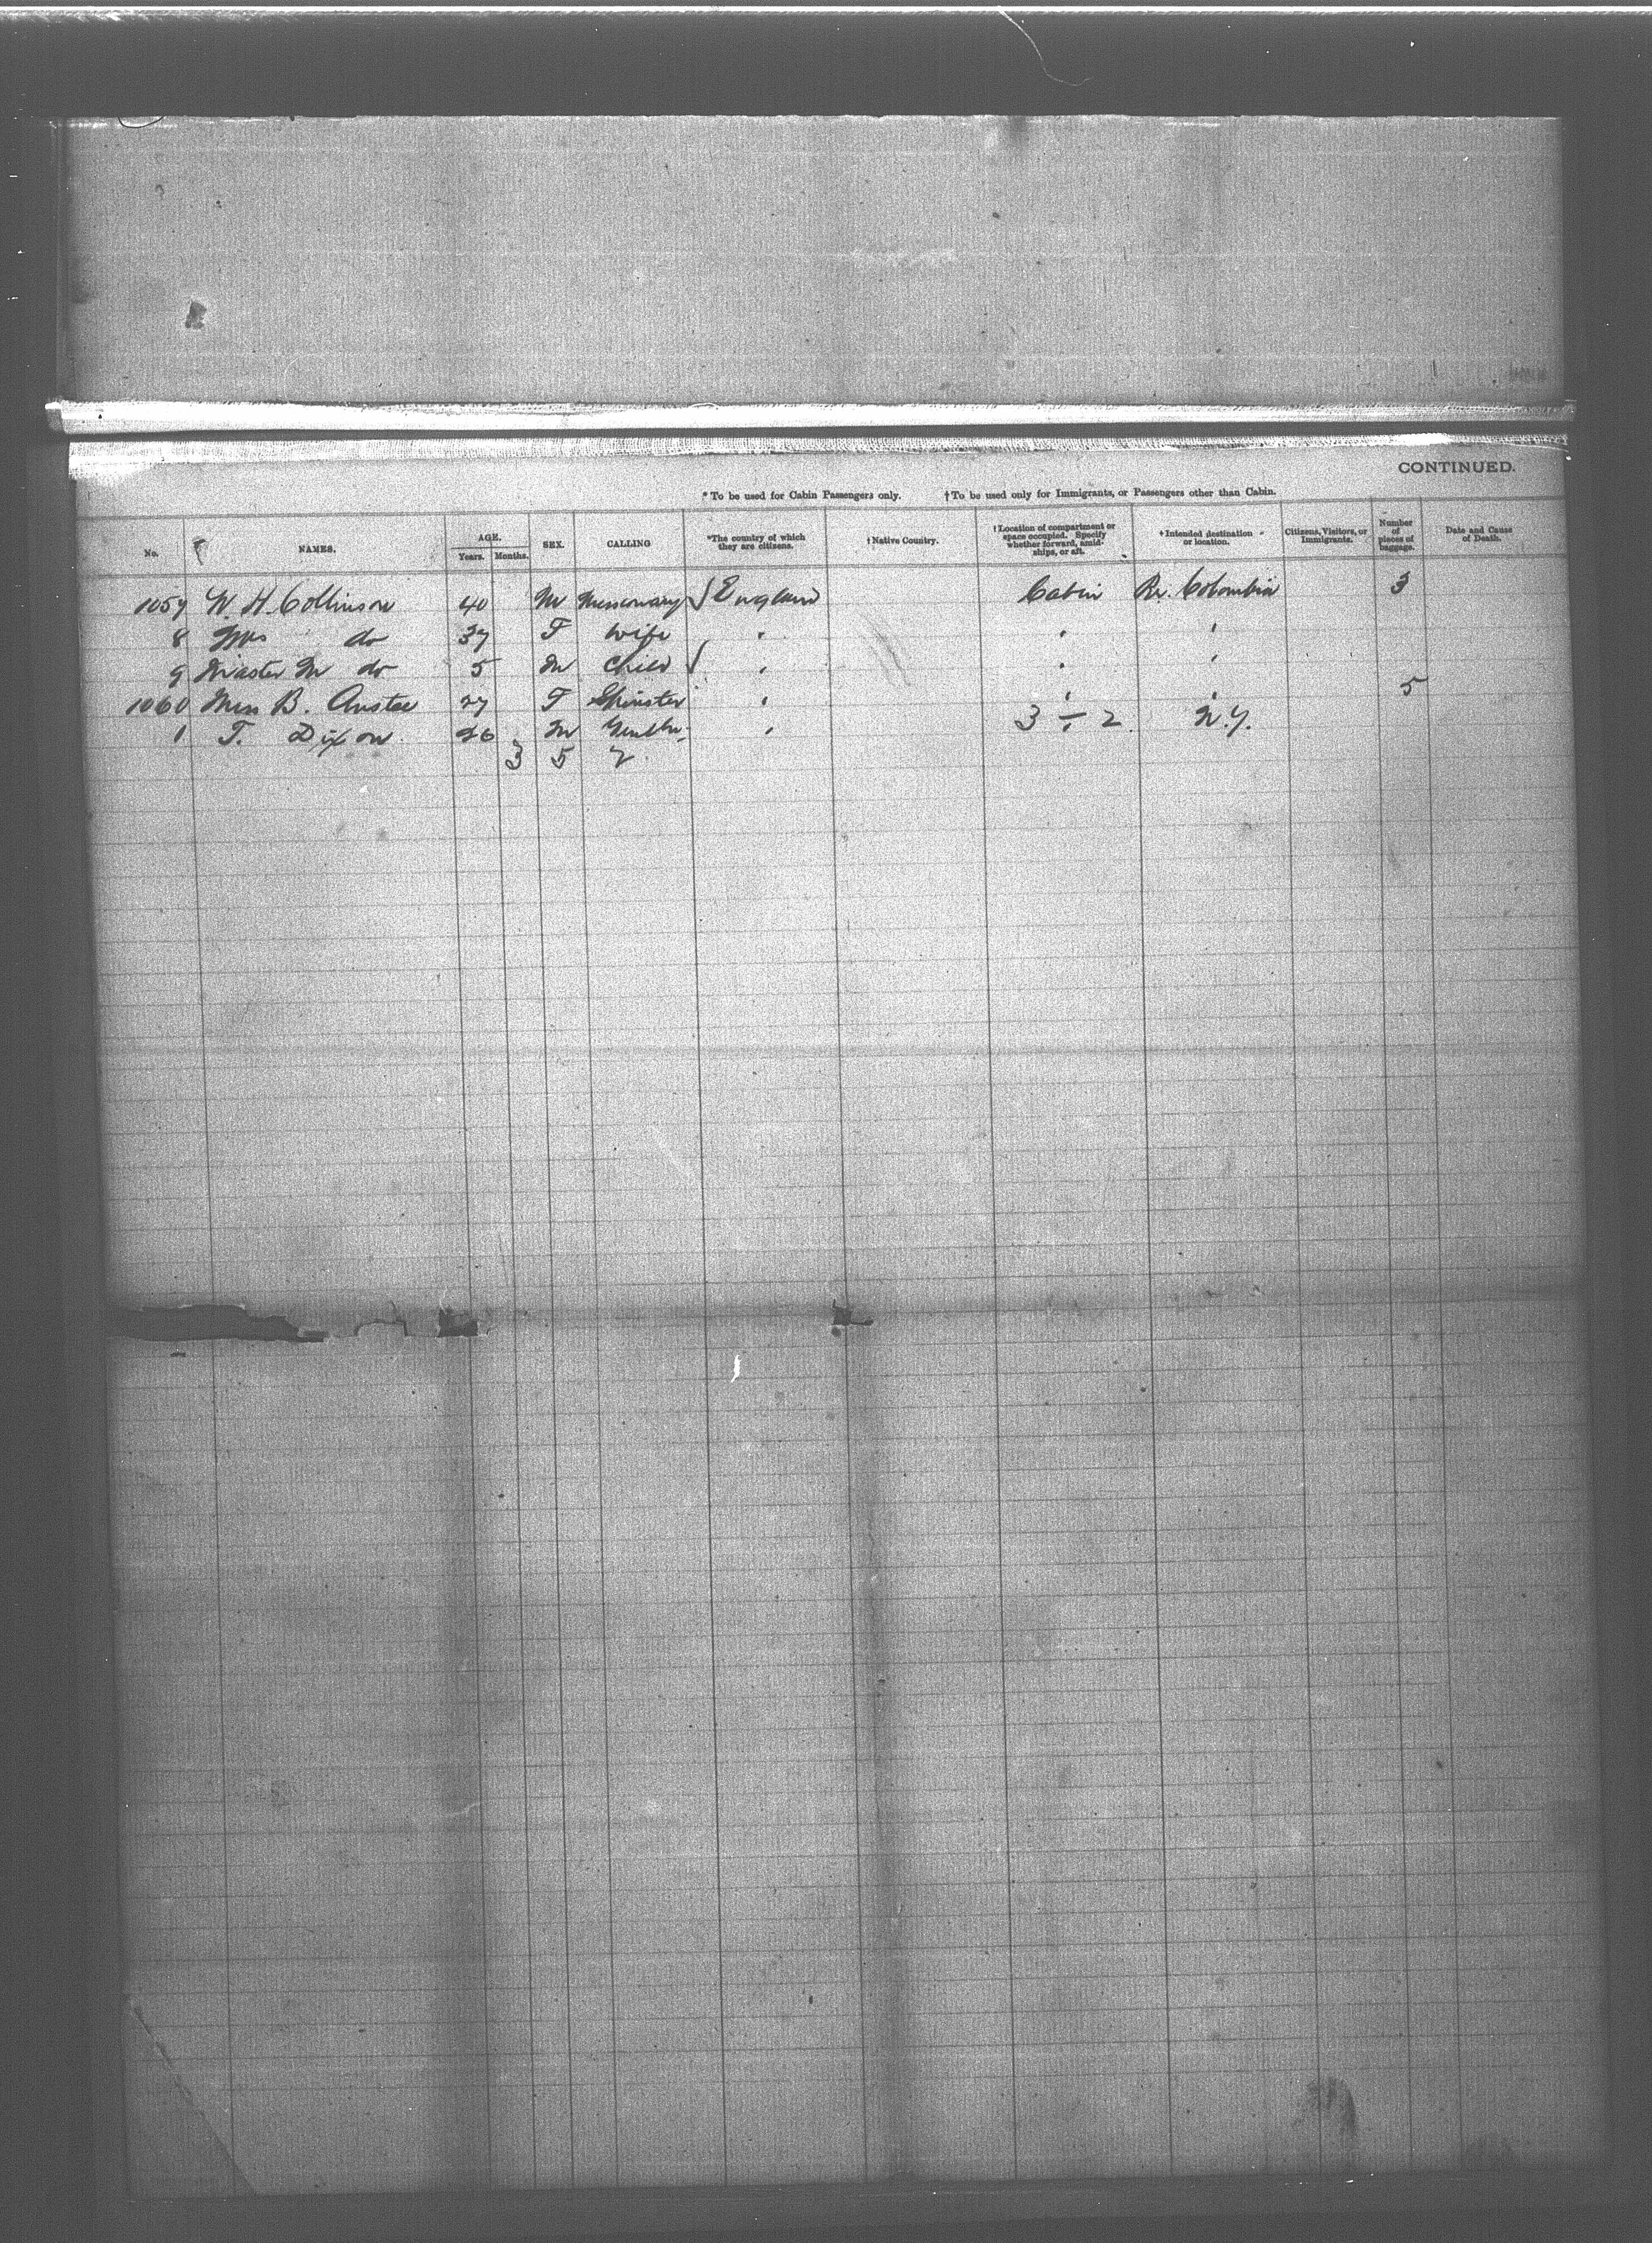 CONTINUED.
* To be used for Cabin Passengers only. † To be used only for Immigrants, or Passengers other than Cabin.
No. NAMES. AGE. Years. Months. SEX. CALLING *The country of which they are citizens. † Native Country. † Location of compartment or space occupied. Specify whether forward, amidships, or aft. † Intended destination or location. Citizens, Visitors, or Immigrants. Number of pieces of baggage. Date and Cause of Death.
1057 W. H. Collinson 40 M Missionary England Cabin Br. Colombia 3
8 Mrs do 37 F wife " " "
9 Master M do 5 M Child " " "
1060 Miss B. 27 F Spinster " " " 5
1 T. Dixon 26 M " 3 ÷ 2 N.Y.
3 5 2